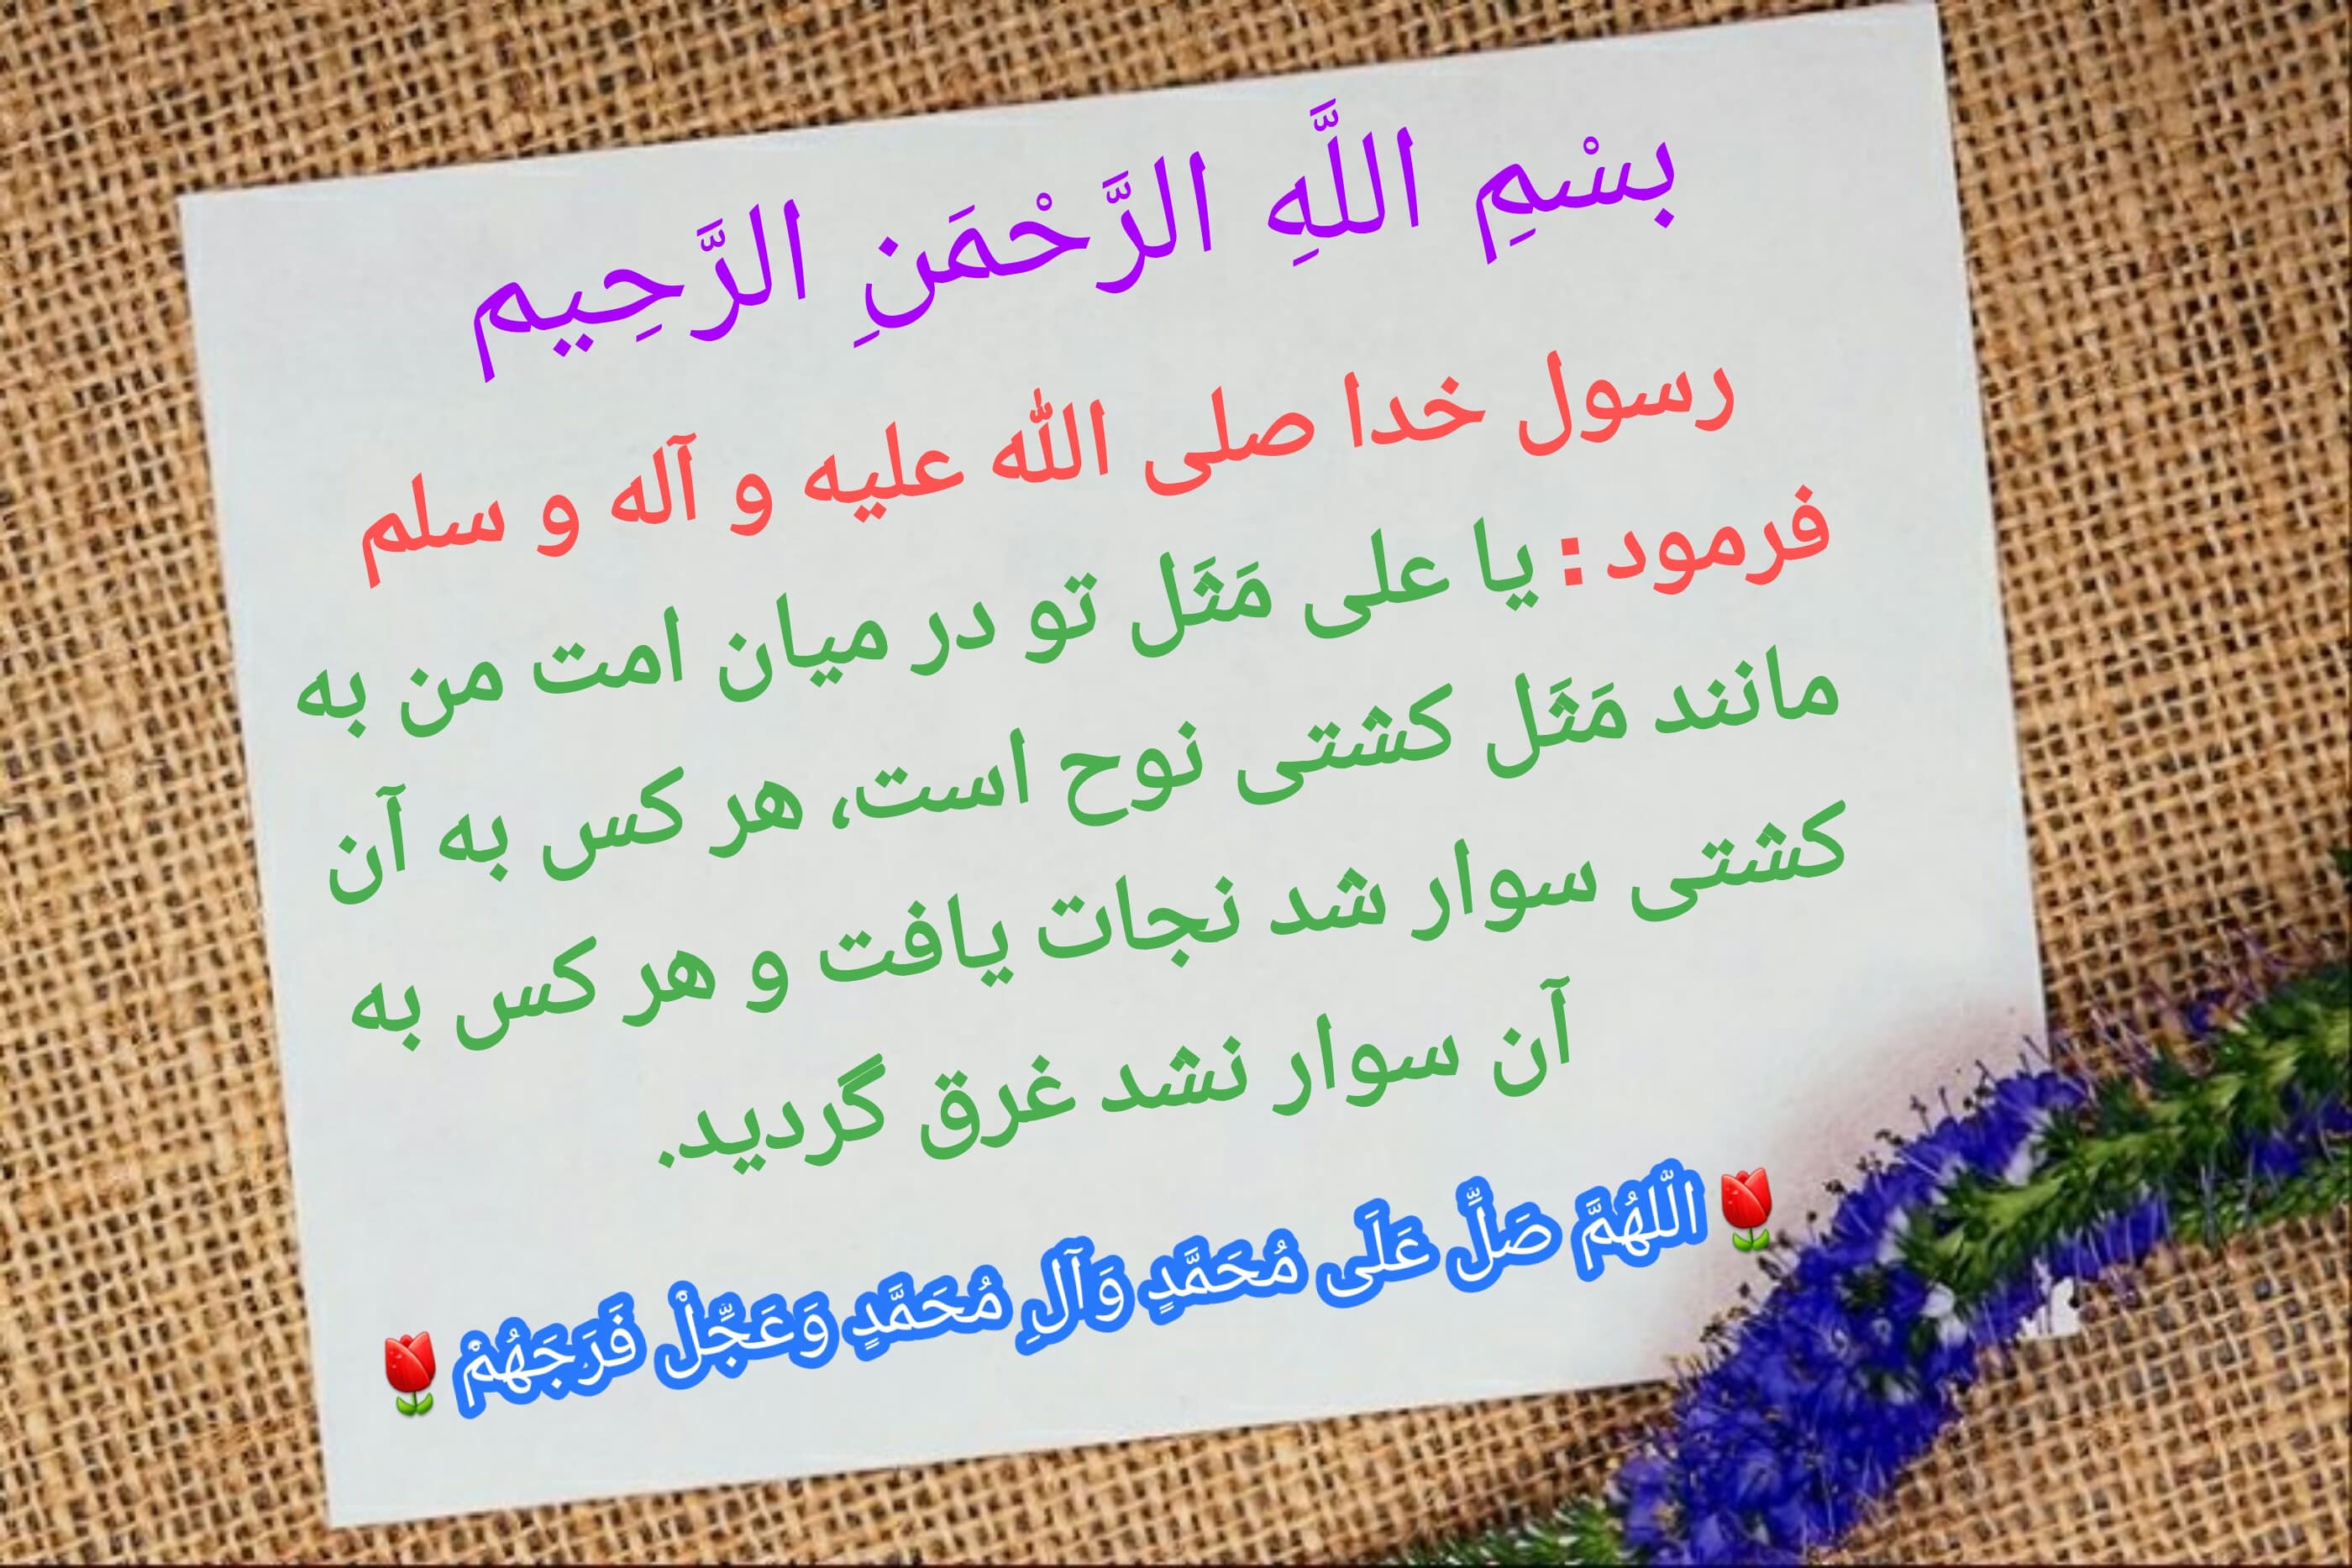 بسْمِ اللَّهِ الرَّحْمَنِ الرَّحِيم
رسول خدا صلی الله علیه و آله و سلم
فرمود : یا علی مَثَل تو در میان امت من به
مانند مَثَل کشتی نوح است، هر کس به آن
کشتی سوار شد نجات یافت و هر کس به
آن سوار نشد غرق گردید.
🌷اللّهُمَّ صَلِّ عَلَى مُحَمَّدٍ وَآلِ مُحَمَّدٍ وَعَجِّلْ فَرَجَهُمْ🌷